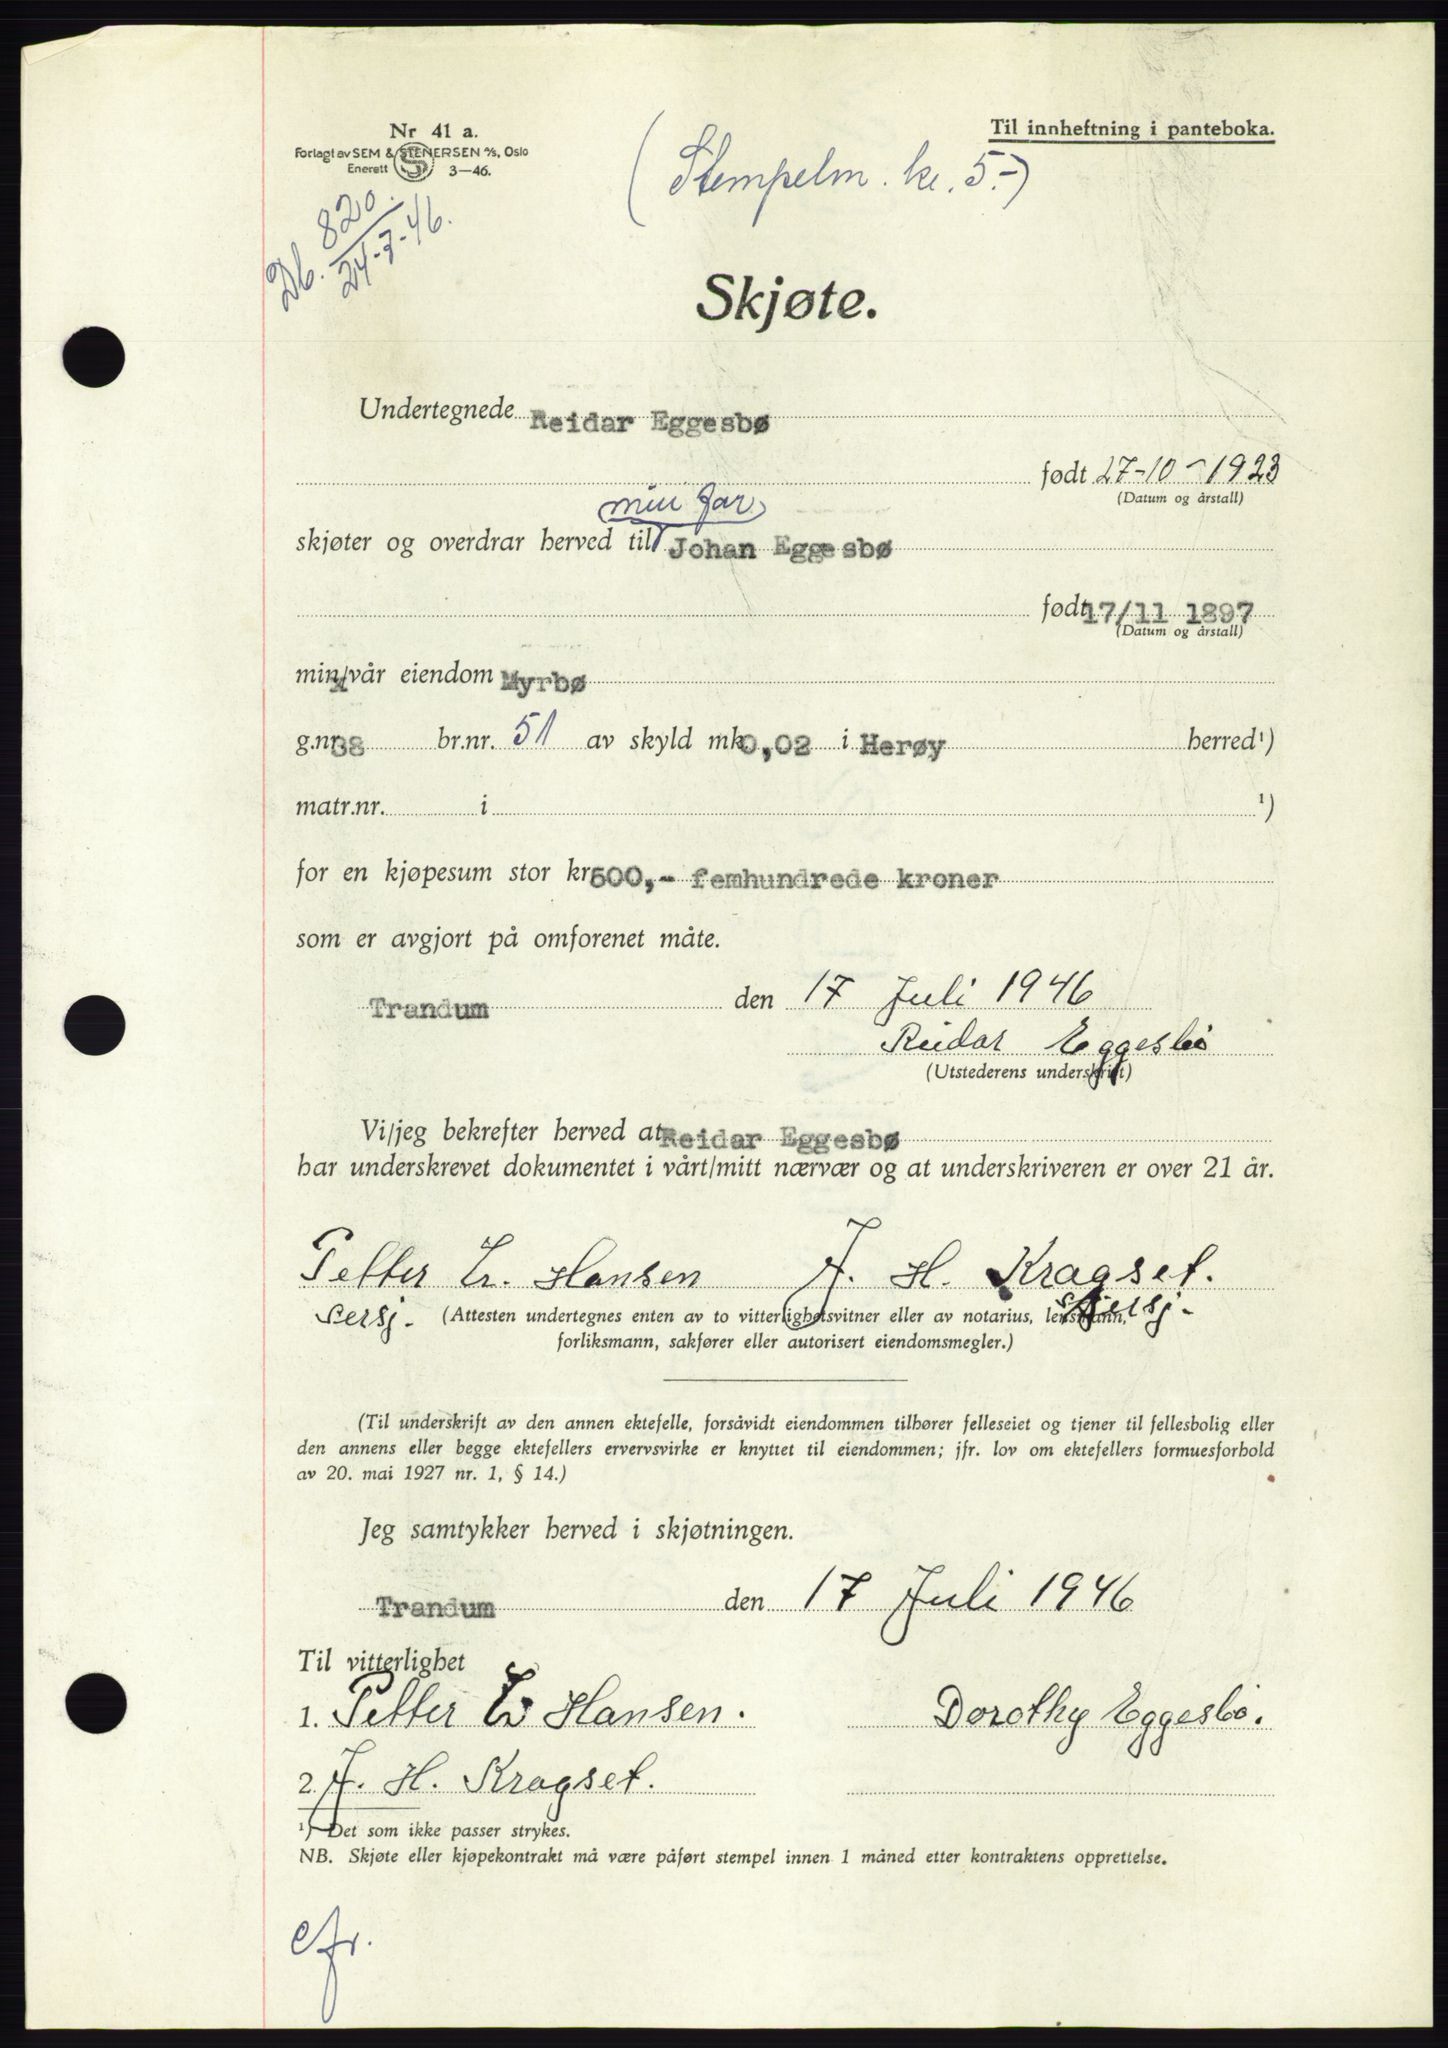 Nr 41 a.
Forlagt av SEM & STENERSEN A/S, Oslo
Enerett S 3—46.
Til innheftning i panteboka.
(Stempelm. kr. 5.-)
Db. 820.
24-7-46.
Skjøte.
Undertegnede Reidar Eggesbø
født 27-10-1923
(Datum og årstall)
min far
skjøter og overdrar herved til Johan Eggesbø
født 17/11 1897
(Datum og årstall)
min/vår eiendom Myrbø
g.nr. 38 br.nr. 51 av skyld mk 0,02 i Herøy herred¹)
matr.nr. i ¹)
for en kjøpesum stor kr 500,- femhundrede kroner
som er avgjort på omforenet måte.
Trandum den 17 Juli 1946
Reidar Eggesbø
(Utstederens underskrift)
Vi/jeg bekrefter herved at Reidar Eggesbø
har underskrevet dokumentet i vårt/mitt nærvær og at underskriveren er over 21 år.
Petter Hansen J. H. Kragset.
sersj. sersj.
(Attesten undertegnes enten av to vitterlighetsvitner eller av notarius, lensmann,
forliksmann, sakfører eller autorisert eiendomsmegler.)
(Til underskrift av den annen ektefelle, forsåvidt eiendommen tilhører felleseiet og tjener til fellesbolig eller
den annens eller begge ektefellers ervervsvirke er knyttet til eiendommen; jfr. lov om ektefellers formuesforhold
av 20. mai 1927 nr. 1, § 14.)
Jeg samtykker herved i skjøtningen.
Trandum den 17 Juli 1946
Til vitterlighet
1. Petter Hansen. Dorothy Eggesbø.
2. J. H. Kragset.
¹) Det som ikke passer strykes.
NB. Skjøte eller kjøpekontrakt må være påført stempel innen 1 måned etter kontraktens opprettelse.